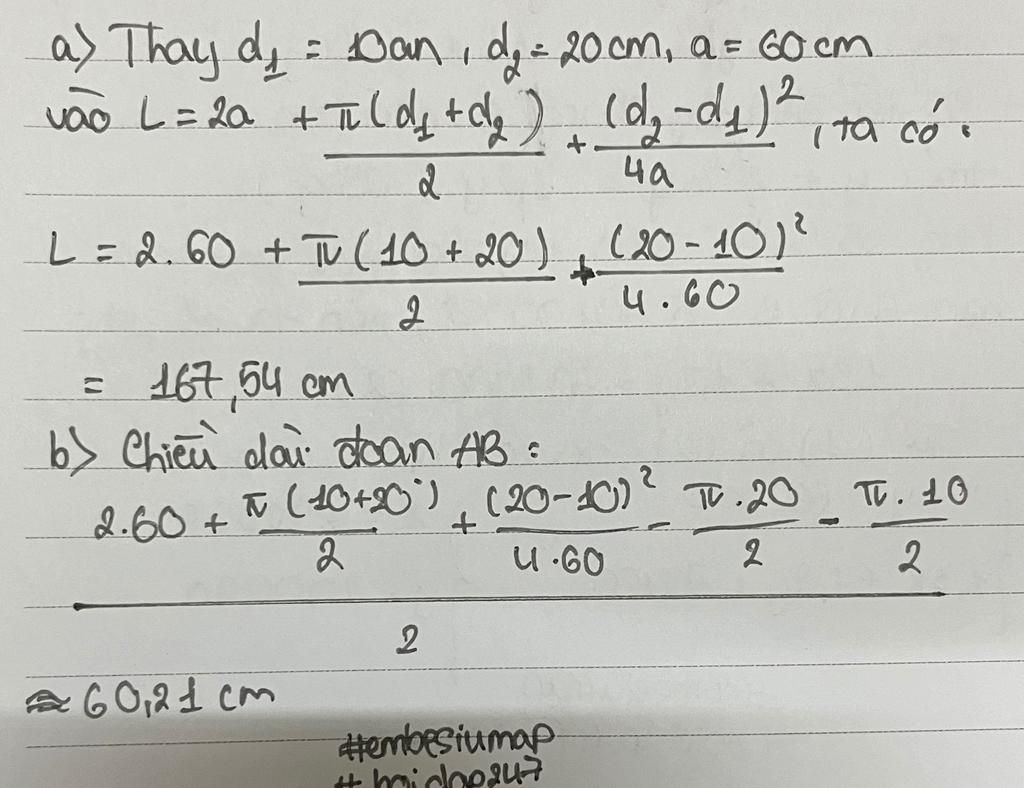 a) Thay d₁ = 10cm, d₂ = 20cm, a = 60cm
vào L = 2a + π(d₁ + d₂)/2 + (d₂ - d₁)²/4a, ta có.
L = 2.60 + π(10 + 20)/2 + (20 - 10)²/4.60
= 167,54 cm
b) Chiều dài đoan AB:
(2.60 + π(10+20)/2 + (20-10)²/4.60 - π.20/2 - π.10/2)/2
≈ 60,21 cm
#embesiumap
#baidao247